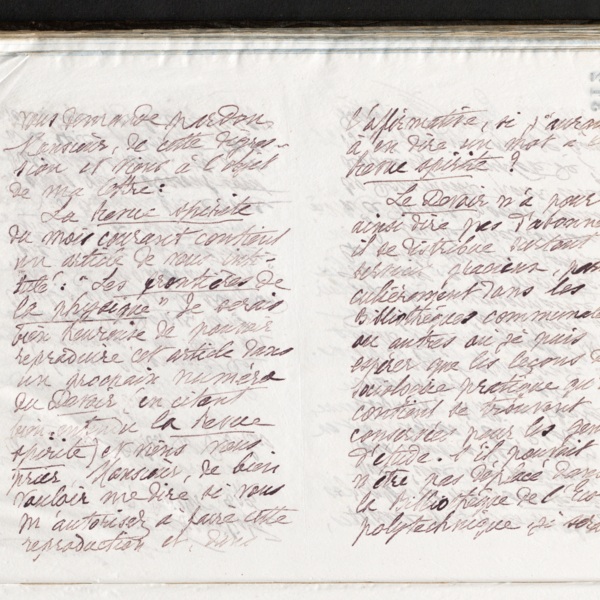 vous demande pardon,
Monsieur, de cette digres-
sion et viens à l'objet
de ma lettre:
La Revue spirite
du mois courant contient
un article de vous inti-
tulé: "Les frontières de
la physique" Je serais
bien heureuse de pouvoir
reproduire cet article dans
un prochain numéro
du Devoir en citant
la Revue
spirite) et viens vous
prier Monsieur, de bien
vouloir me dire si vous
m'autorisez à faire cette
reproduction et dans
l'affirmative, si j'aurai
à en dire un mot à l
Revue spirite?
Le Devoir n'a pour
ainsi dire pas d'abonné
il se distribue surtout
gracieux, par
culièrement dans les
Bibliothèques communale
ou autres où je puis
espérer que les leçons d
sociologie pratique qu'
contient se trouvent
conservées pour les
d'étude. S'il pouvait
n'être pas déplacé dans
la bibliothèque de l'Eco
polytechnique je sera